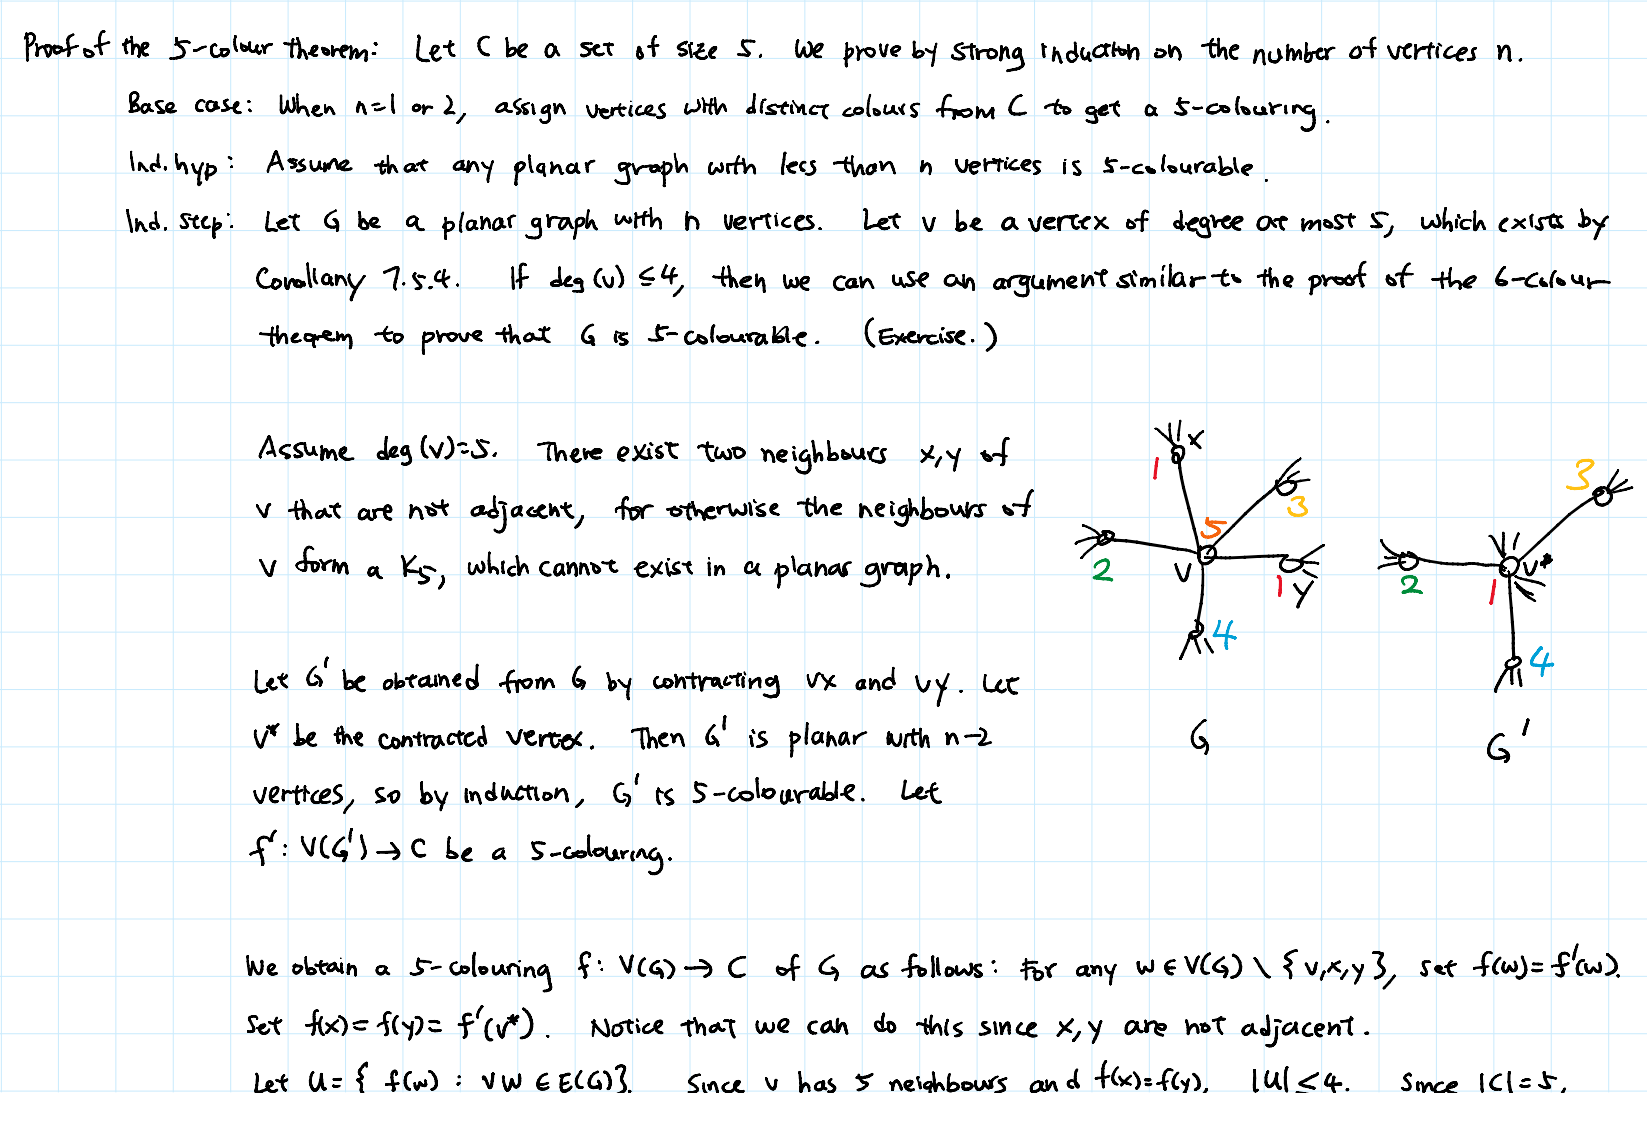 Proof of the 5-colour theorem: Let C be a set of size 5. We prove by strong induction on the number of vertices n.
Base case: When n=1 or 2, assign vertices with distinct colours from C to get a 5-colouring.
Ind. hyp: Assume that any planar graph with less than n vertices is 5-colourable.
Ind. step: Let G be a planar graph with n vertices. Let v be a vertex of degree at most 5, which exists by
Corollary 7.5.4. If deg(v) ≤ 4, then we can use an argument similar to the proof of the 6-colour
theorem to prove that G is 5-colourable. (Exercise.)
Assume deg(v)=5. There exist two neighbours x,y of
v that are not adjacent, for otherwise the neighbours of
v form a K5, which cannot exist in a planar graph.
x
1
3
5
2
v
1 y
4
G
3
2
v*
1
4
G'
Let G' be obtained from G by contracting vx and vy. Let
v* be the contracted vertex. Then G' is planar with n-2
vertices, so by induction, G' is 5-colourable. Let
f': V(G') → C be a 5-colouring.
We obtain a 5-colouring f: V(G) → C of G as follows: For any w ∈ V(G) \ {v,x,y}, set f(w)=f'(w).
Set f(x)=f(y)= f'(v*). Notice that we can do this since x,y are not adjacent.
Let U={ f(w) : vw ∈ E(G)}. Since v has 5 neighbours and f(x)=f(y), |U| ≤ 4. Since |C|=5,